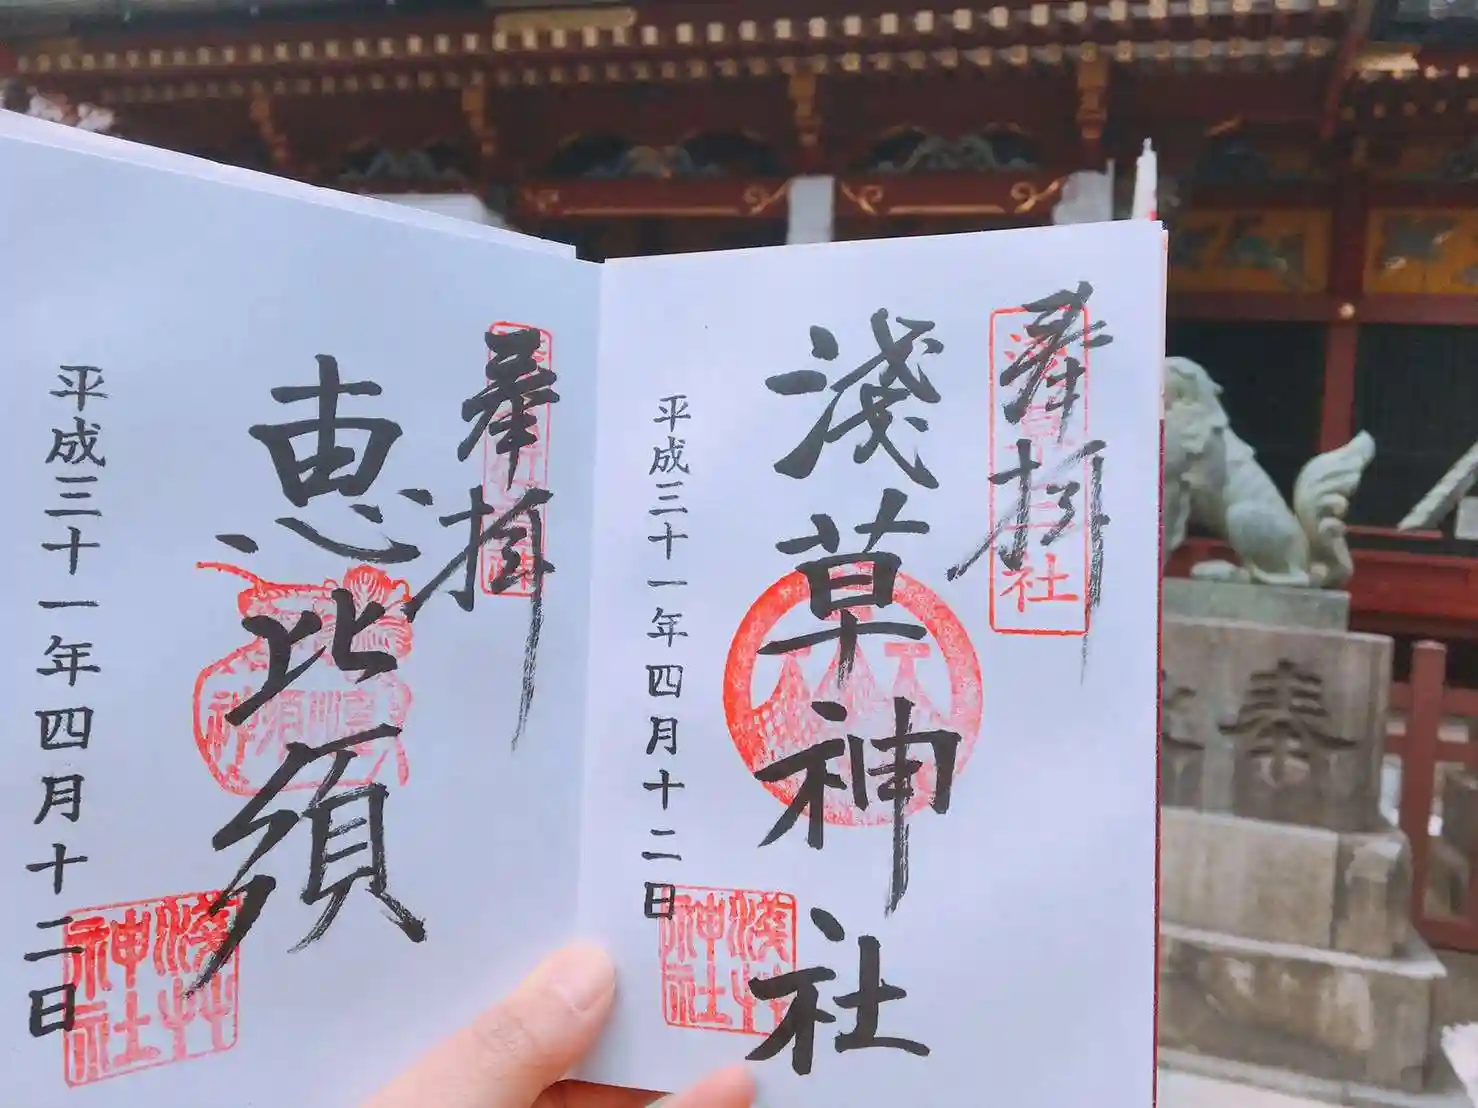 奉拝
淺草神社
平成三十一年四月十二日
淺草神社
奉拝
恵比須
平成三十一年四月十二日
淺草神社
奉